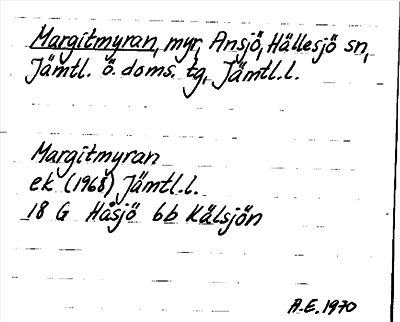 Margitmyran, myr, Ansjö, Hällesjö sn,
Jämtl. ö. doms. tg, Jämtl.l.
Margitmyran
ek (1968) Jämtl.l.
18 G Håsjö 6b Kälsjön
A.E. 1970